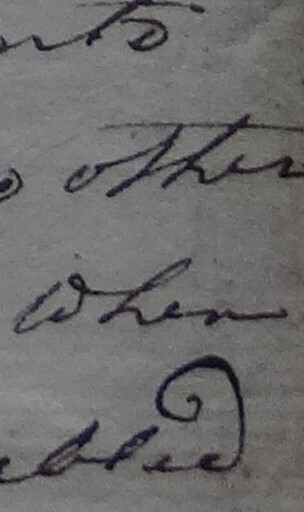 nts
o other
when
bled